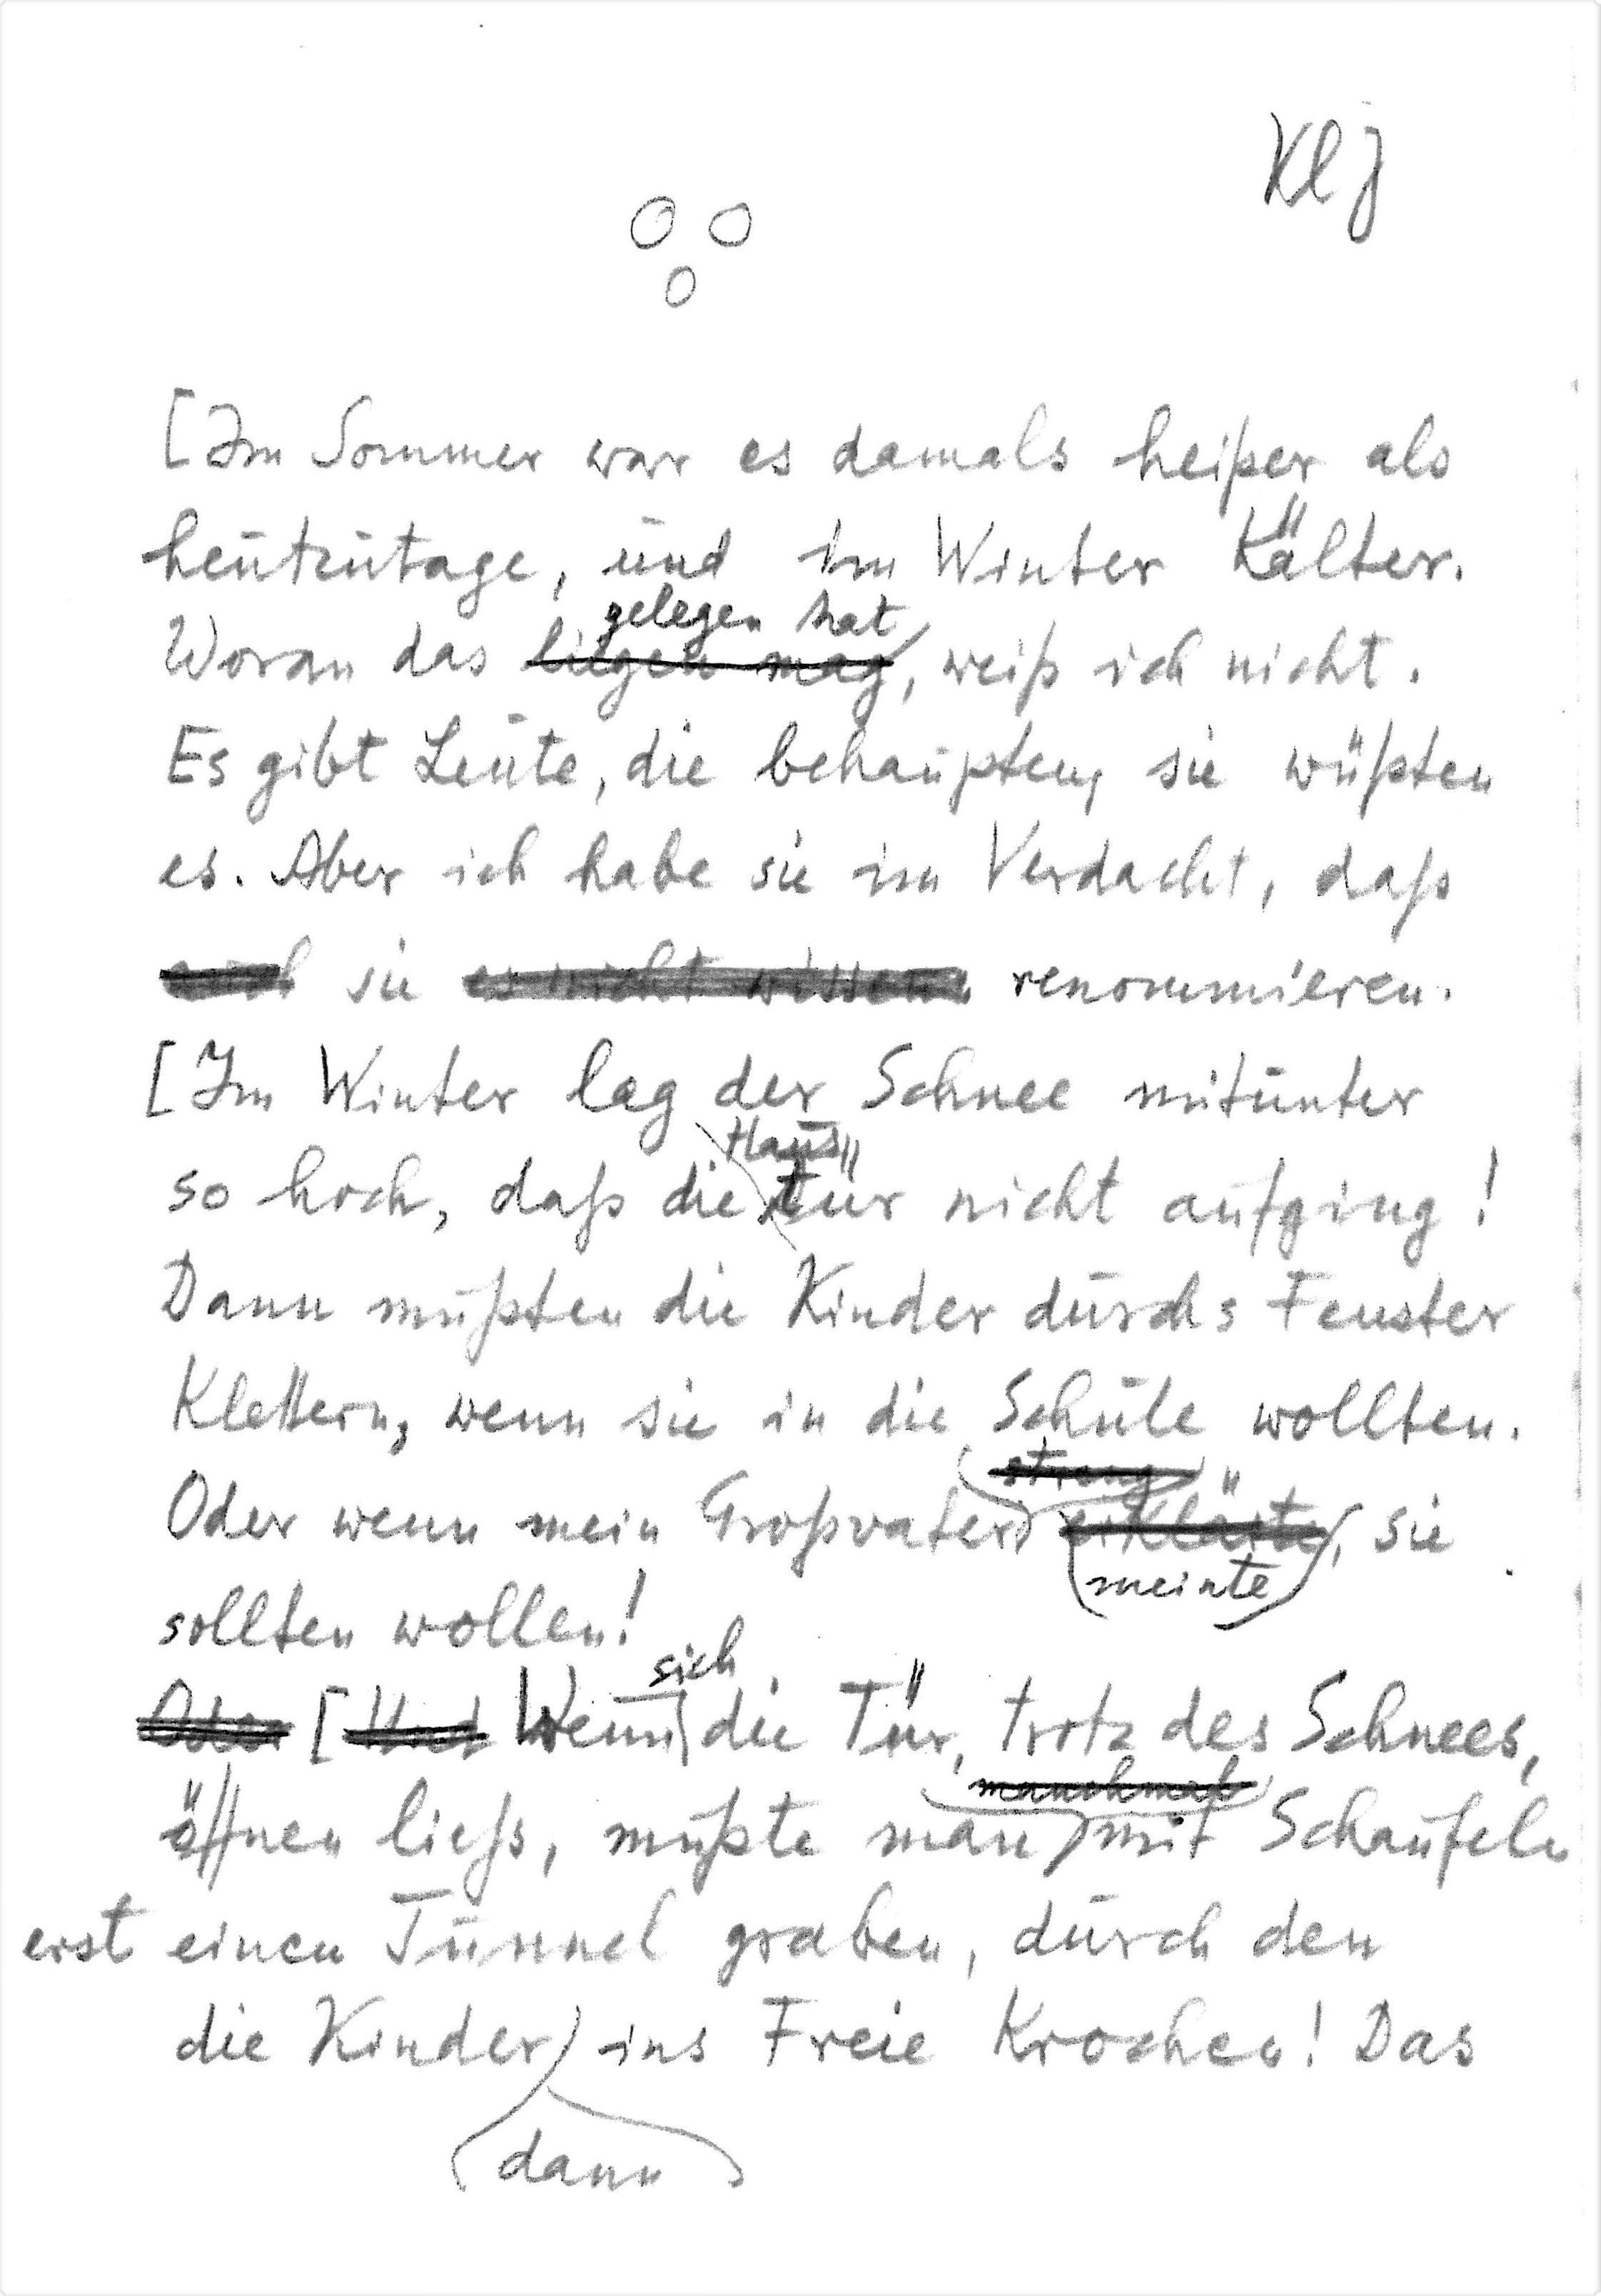 Klj
[Im Sommer war es damals heißer als
heutzutage, und im Winter kälter.
gelegen hat
Woran das liegen mag, weiß ich nicht.
Es gibt Leute, die behaupten, sie wüßten
es. Aber ich habe sie im Verdacht, daß
auch sie es nicht wissen. renommieren.
[Im Winter lag der Schnee mitunter
Haus
so hoch, daß die tür nicht aufging!
Dann mußten die Kinder durchs Fenster
klettern, wenn sie in die Schule wollten.
streng
Oder wenn mein Großvater erklärte, sie
meinte
sollten wollen!
sich
Oder [Und Wenn die Tür, trotz des Schnees,
manchmal
öffnen ließ, mußte man mit Schaufeln
erst einen Tunnel graben, durch den
die Kinder ins Freie krochen! Das
dann